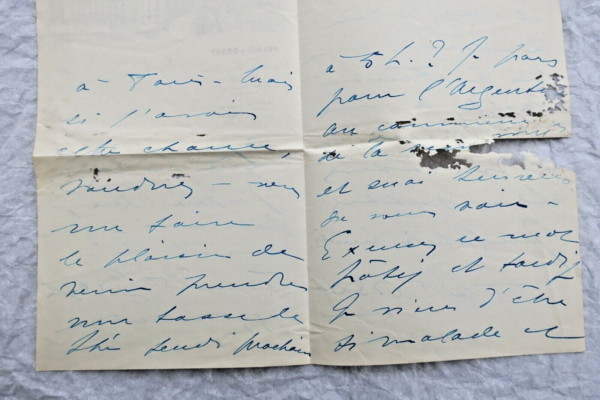 à Paris - Mais
si j'avais
cette chance,
voudrez - vous
me faire
le plaisir de
venir prendre
une tasse de
thé jeudi prochain
à 5 h. ? Je pars
pour l'Argentine
au commenc
de la
et serai heureuse
de vous voir -
Excusez ce mot
hâtif et tardif
Je viens d'être
si malade et